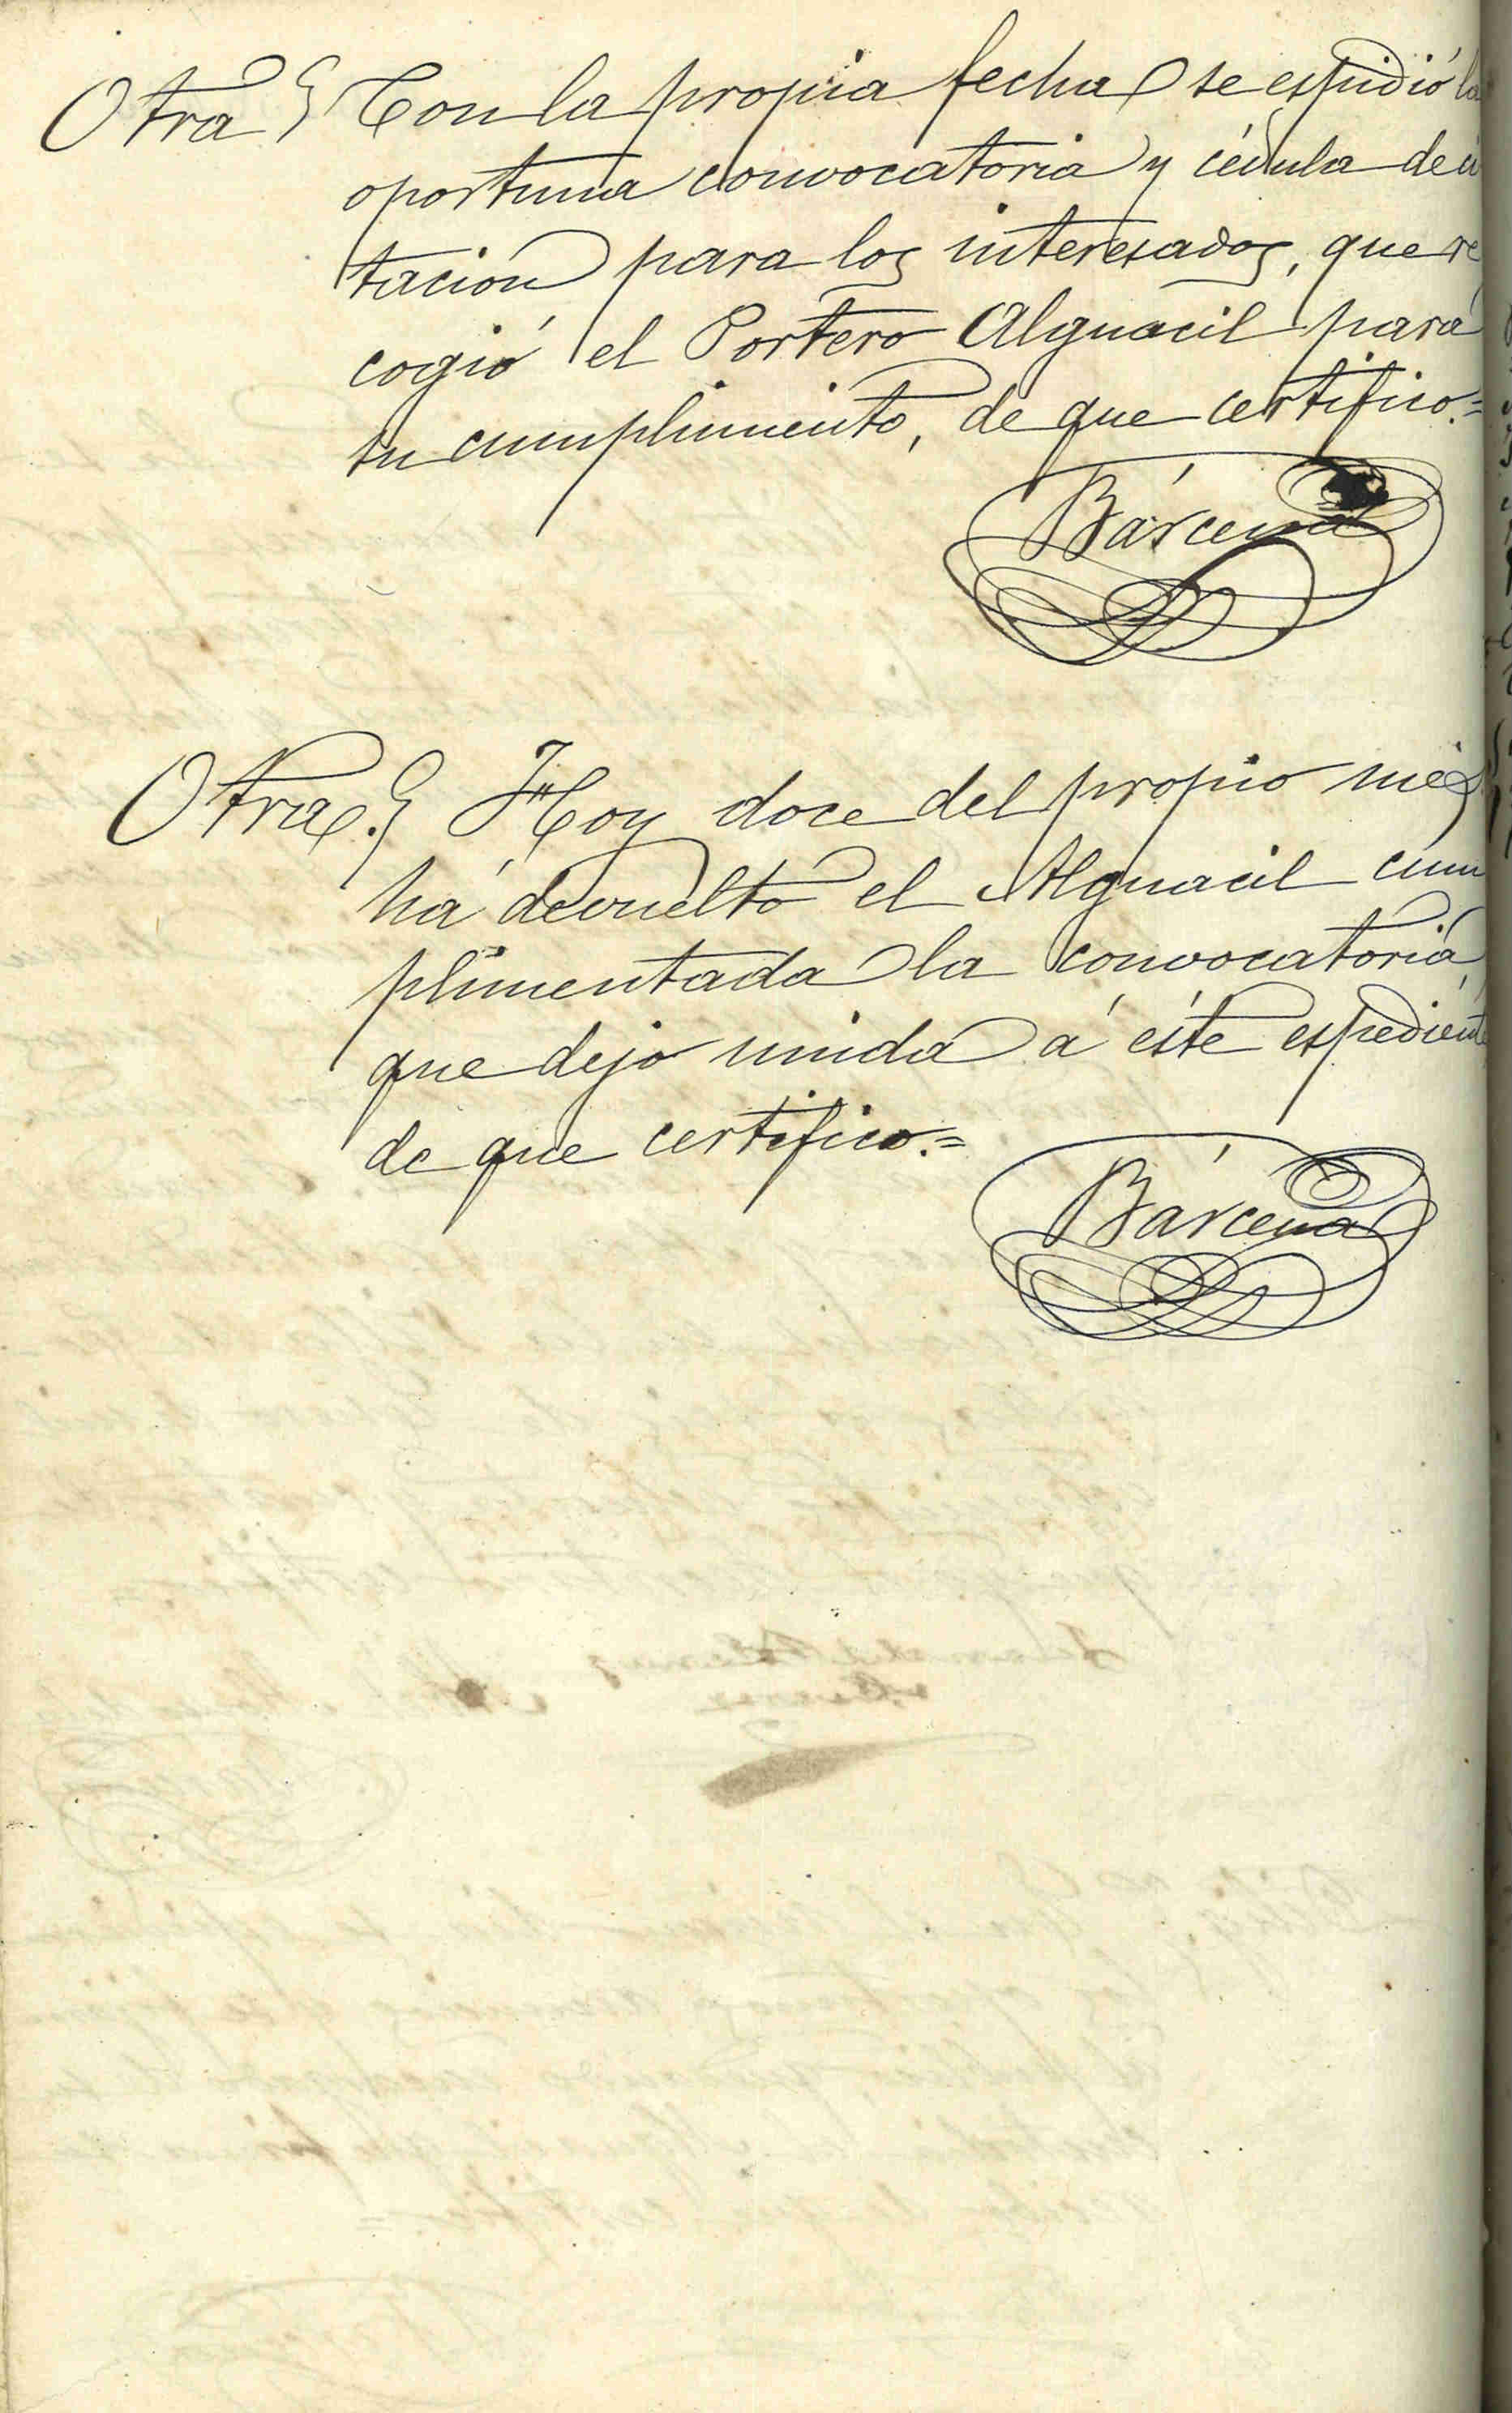 Otra} Con la propia fecha se espidió la
oportuna convocatoria y cédula de ci
tación para los interesados, que re
cogió el Portero Alguacil para
su cumplimiento, de que certifico.=
Bárcena
Otra.} Hoy doce del propio més
há devuelto el Alguacil cum
plimentada la convocatoria,
que dejo unida á éste espediente
de que certifico.=
Bárcena